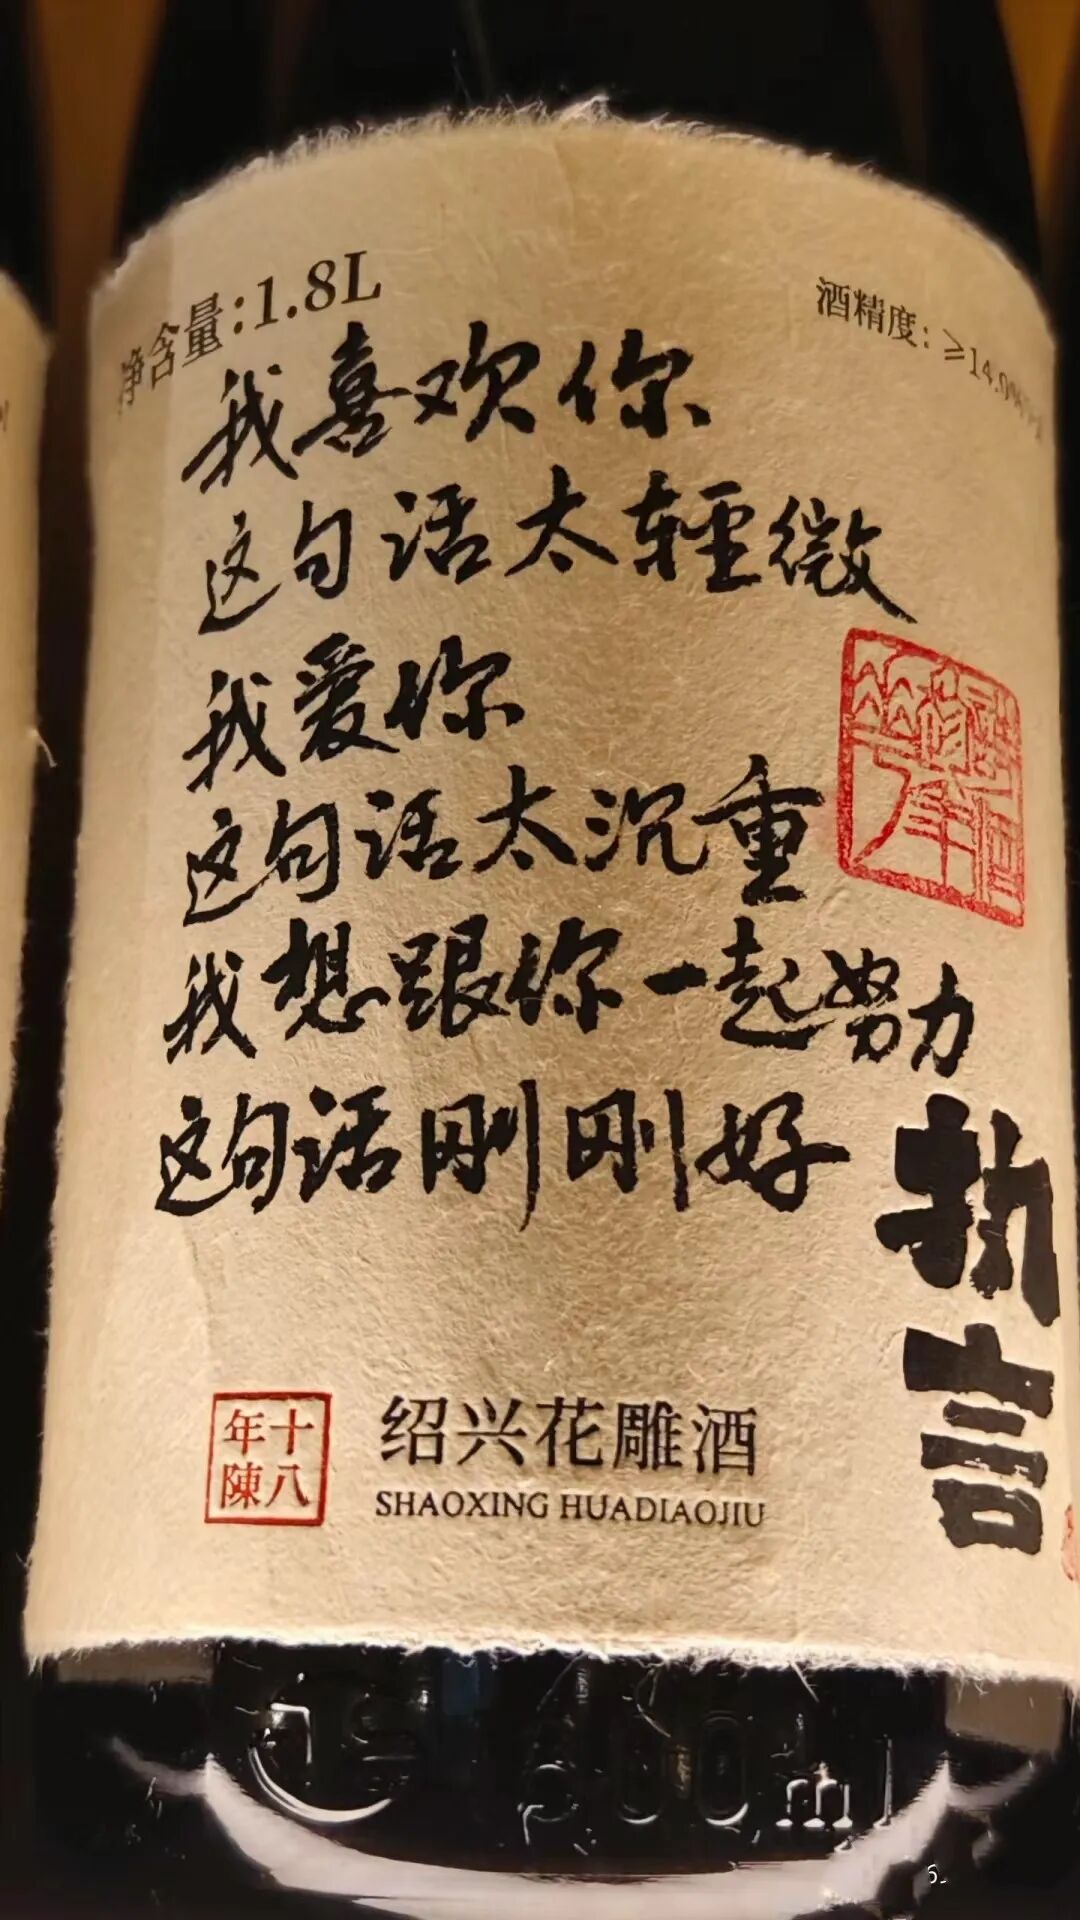 净含量:1.8L
酒精度:≥14.0%vol
我喜欢你
这句话太轻微
我爱你
这句话太沉重
我想跟你一起努力
这句话刚刚好
执言
十八年陳
绍兴花雕酒
SHAOXING HUADIAOJIU
1800ml